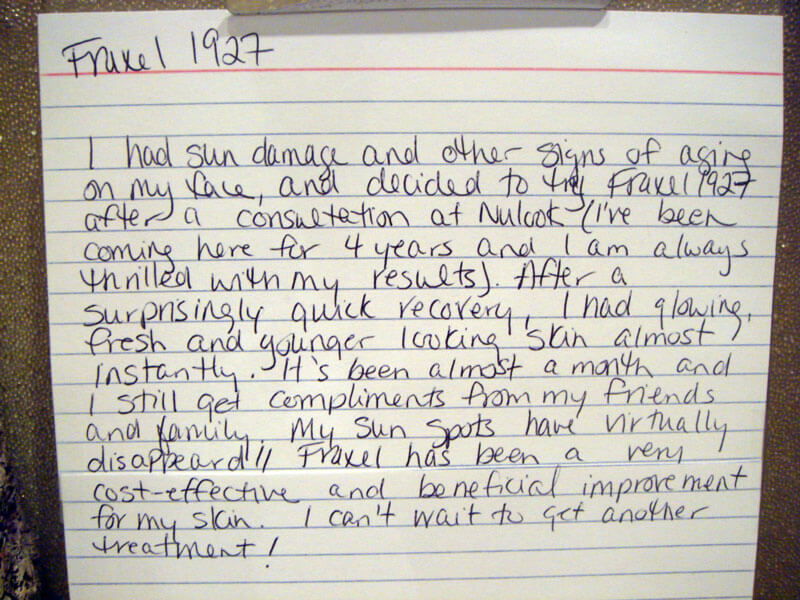 Fraxel 1927
I had sun damage and other signs of aging
on my face, and decided to try Fraxel 1927
after a consultation at Nulook (I've been
coming here for 4 years and I am always
thrilled with my results). After a
surprisingly quick recovery, I had glowing,
fresh and younger looking skin almost
instantly. It's been almost a month and
I still get compliments from my friends
and family. My sun spots have virtually
disappeard!! Fraxel has been a very
cost-effective and beneficial improvement
for my skin. I can't wait to get another
treatment!